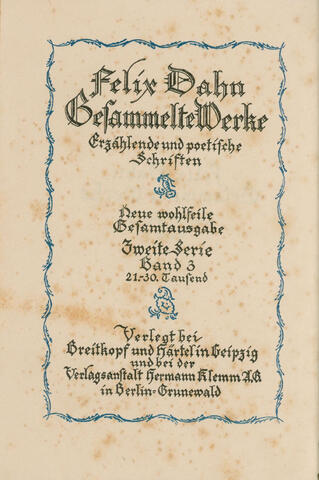 Felix Dahn
Gesammelte Werke
Erzählende und poetische
Schriften
Neue wohlfeile
Gesamtausgabe
Zweite Serie
Band 3
21.-30. Tausend
Verlegt bei
Breitkopf und Härtel in Leipzig
und bei der
Verlagsanstalt Hermann Klemm A.G.
in Berlin-Grunewald